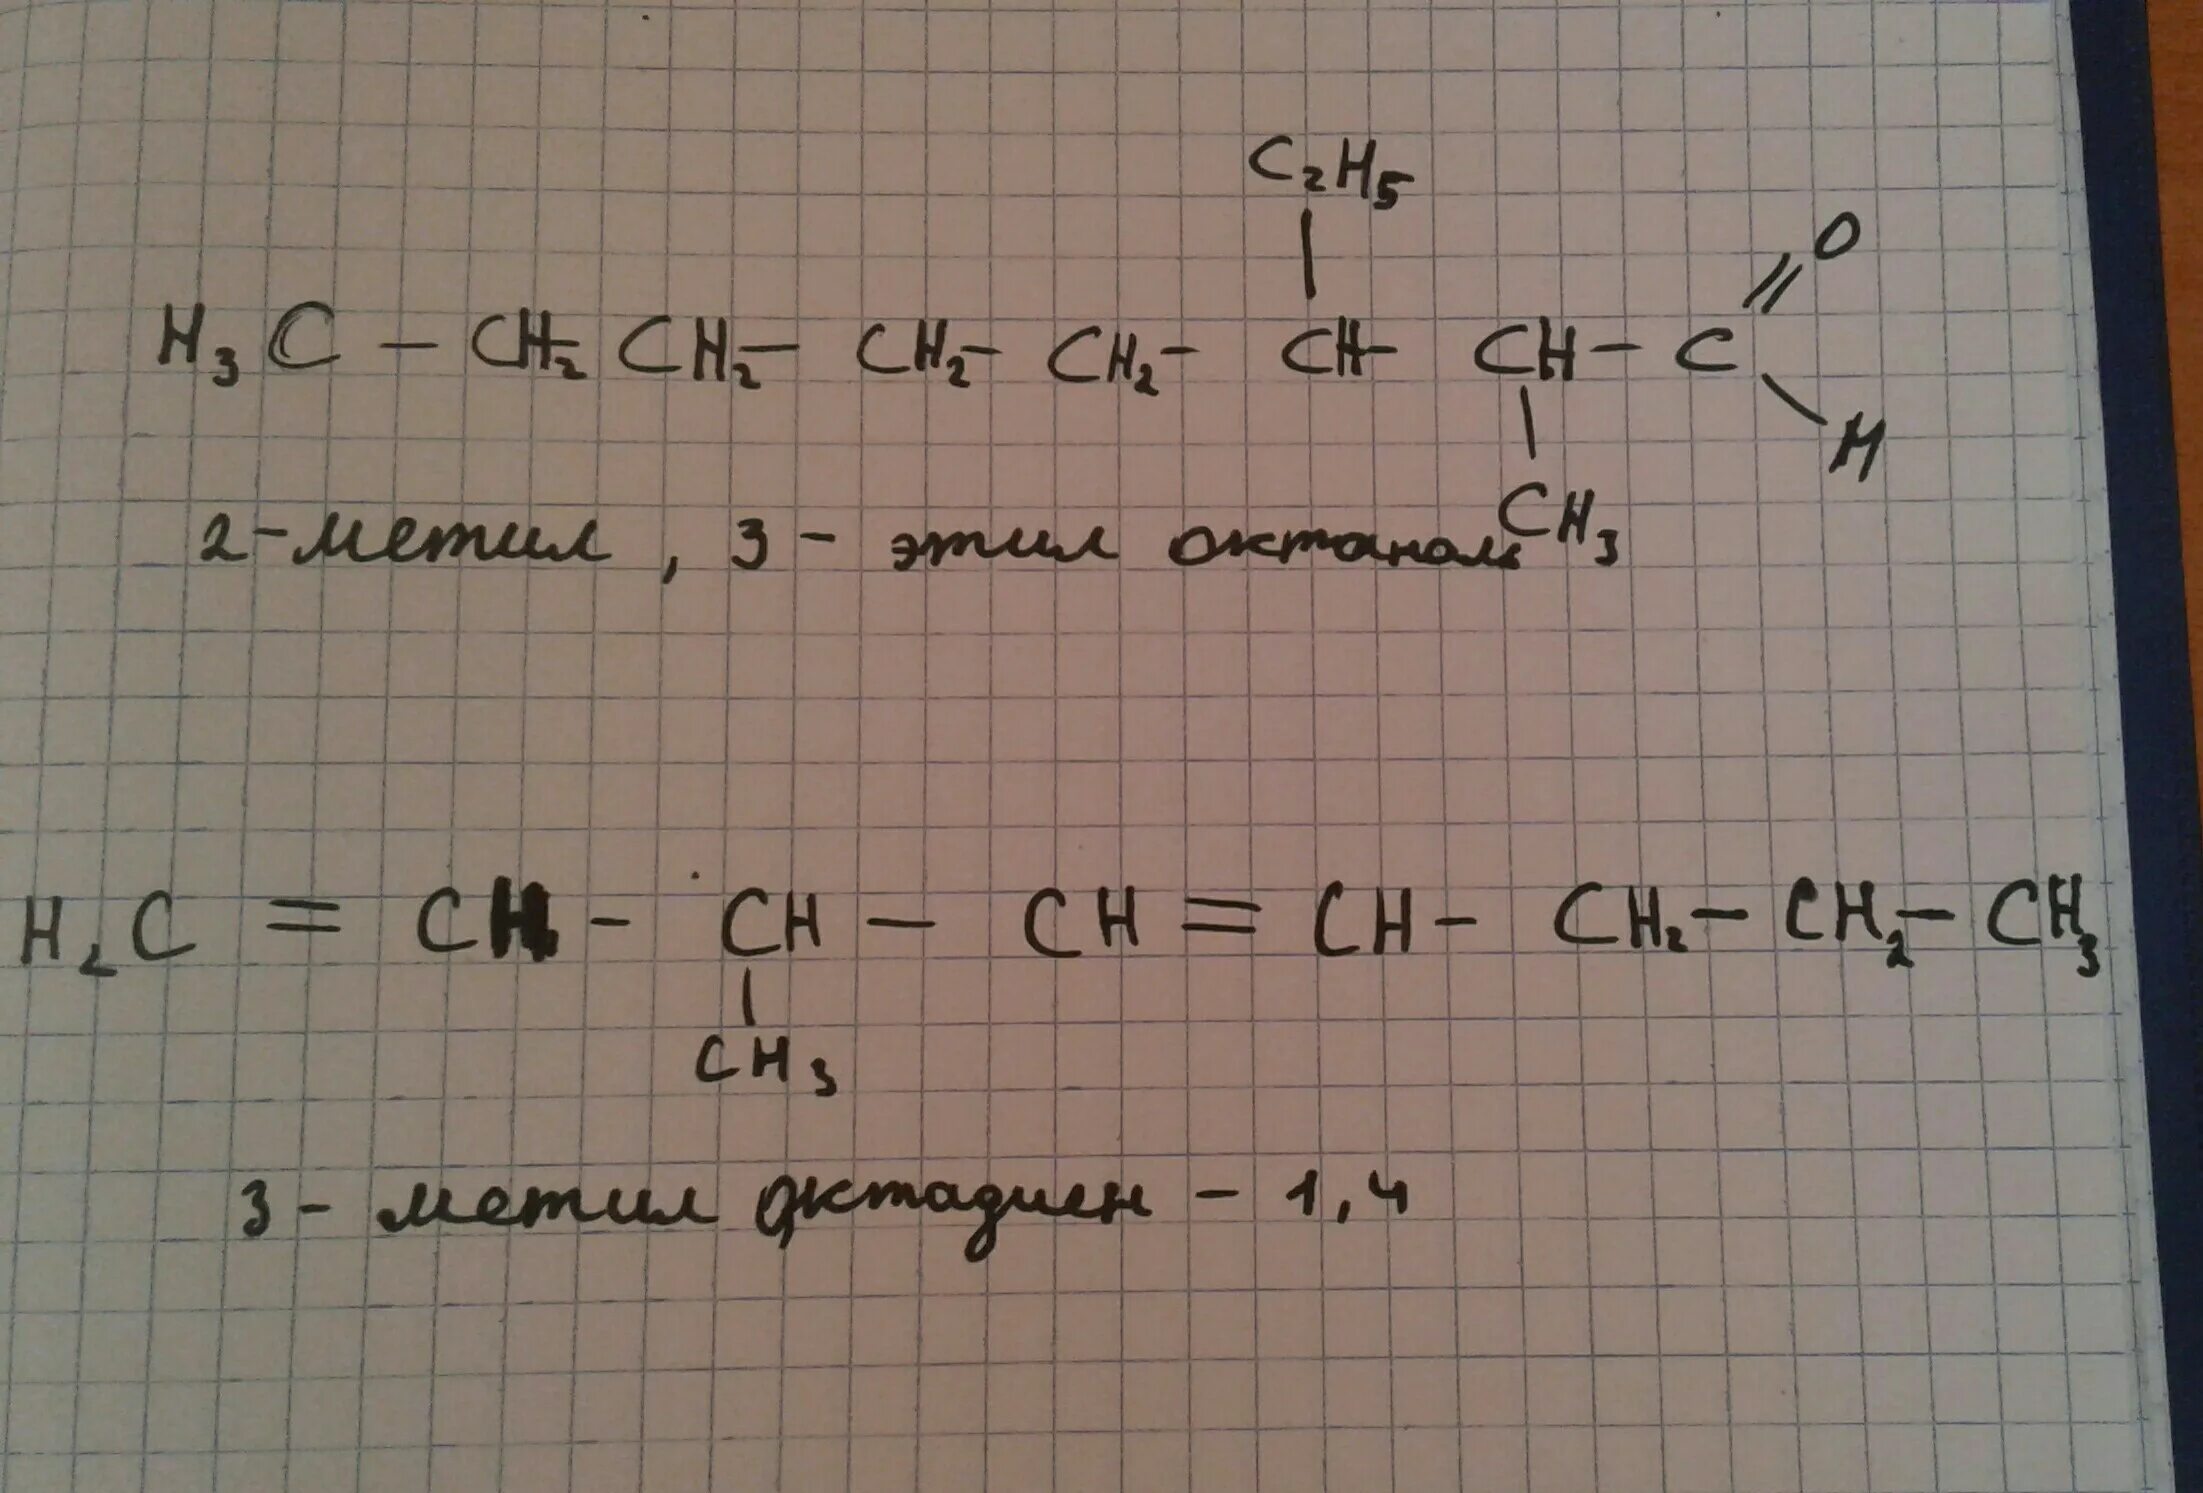 C₂H₅
O
H₃C – CH₂ – CH₂ – CH₂ – CH₂ – CH – CH – C
H
CH₃
2 – метил , 3 – этил октаналь
H₂C = CH – CH – CH = CH – CH₂ – CH₂ – CH₃
CH₃
3 – метил октадиен – 1,4